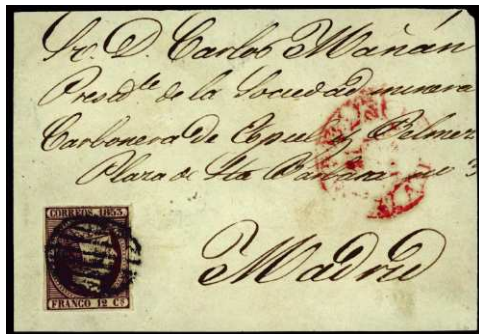 Sr. D. Carlos Mañán
Presid.te de la Sociedad minera
Carbonera de Espiel y Belmez
Plaza de Sta Barbara no 3
CORREOS. 1853.
FRANCO 12 Cs
Madrid